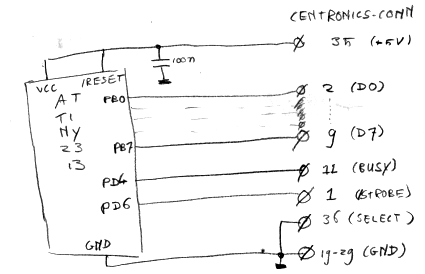 CENTRONICS-CONN
35 (+5V)
VCC
/RESET
100n
AT
TI
NY
23
13
PB0
2 (D0)
PB7
9 (D7)
PD4
11 (BUSY)
PD6
1 (STROBE)
36 (SELECT)
GND
19-29 (GND)